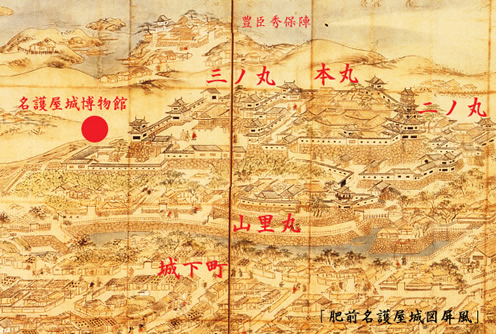 豊臣秀保陣
三ノ丸
本丸
二ノ丸
名護屋城博物館
山里丸
城下町
「肥前名護屋城図屏風」